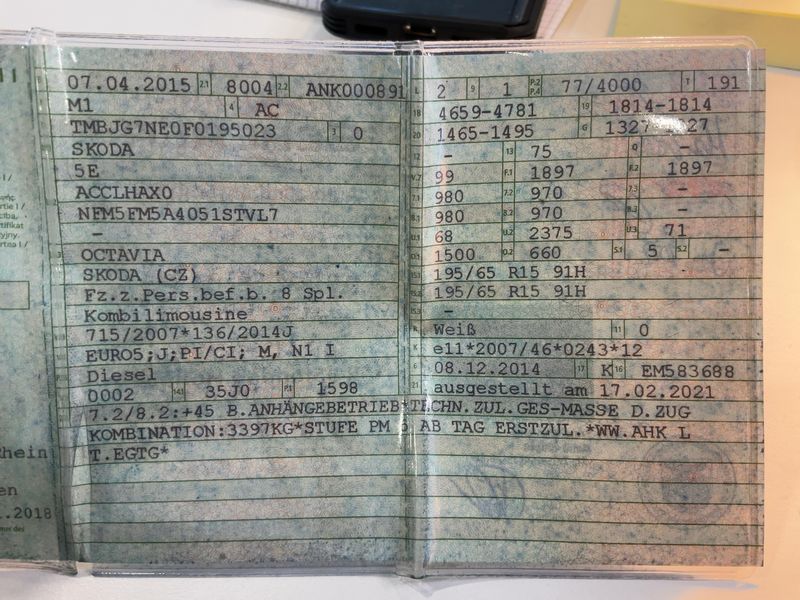 07.04.2015 2.1 8004 2.2 ANK000891
M1 4 AC
TMBJG7NE0F0195023 3 0
SKODA
5E
ACCLHAX0
NFM5FM5A4051STVL7
-
OCTAVIA
SKODA (CZ)
Fz.z.Pers.bef.b. 8 Spl.
Kombilimousine
715/2007*136/2014J
EURO5;J;PI/CI; M, N1 I
Diesel
0002 14.1 35J0 P.1 1598
L 2 9 1 P.2 P.4 77/4000 T 191
18 4659-4781 19 1814-1814
20 1465-1495 G 1327-
12 - 13 75 Q -
V.7 99 F.1 1897 F.2 1897
7.1 980 7.2 970 7.3 -
8.1 980 8.2 970 8.3 -
U.1 68 U.2 2375 U.3 71
O.1 1500 O.2 660 S.1 5 S.2 -
15.1 195/65 R15 91H
15.2 195/65 R15 91H
15.3 -
R Weiß 11 0
K e11*2007/46*0243*12
6 08.12.2014 17 K 16 EM583688
21 ausgestellt am 17.02.2021
7.2/8.2:+45 B.ANHÄNGEBETRIEB*TECHN.ZUL.GES-MASSE D.ZUG
KOMBINATION:3397KG*STUFE PM 5 AB TAG ERSTZUL.*WW.AHK L
T.EGTG*